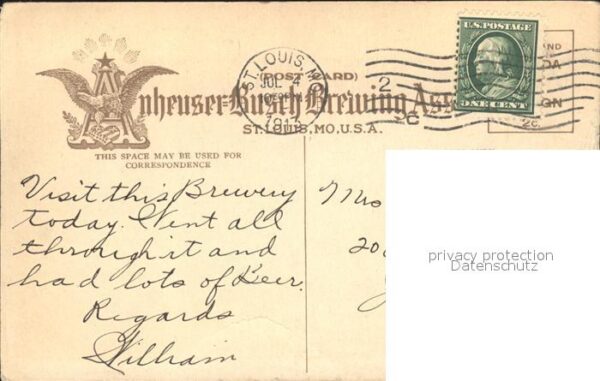 ST. LOUIS, MO.
JUL 4
1917
U.S. POSTAGE
ONE CENT
(POST CARD)
Anheuser-Busch Brewing Ass
ST. LOUIS, MO., U.S.A.
2c.
THIS SPACE MAY BE USED FOR
CORRESPONDENCE
Visit this Brewery
today. Went all
through it and
had lots of Beer.
Regards
William
privacy protection
Datenschutz